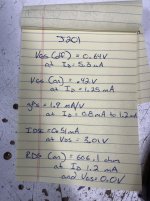 J201
VGS (off) = 0.64V
at ID = 5.3 mA
VGS (on) = .42V
at ID = 1.25 mA
gfs = 1.9 mA/V
at ID = 0.8 mA to 1.2 mA
IDSS = 0.51 mA
at VDS = 3.01V
RDS (on) = 606.1 ohm
at ID 1.2 mA
and VGS = 0.0V